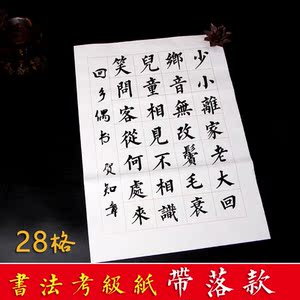 少小離家老大回
鄉音無改鬢毛衰
兒童相見不相識
笑問客從何處來
回乡偶书 贺知章
28格
書法考級紙 帶落款